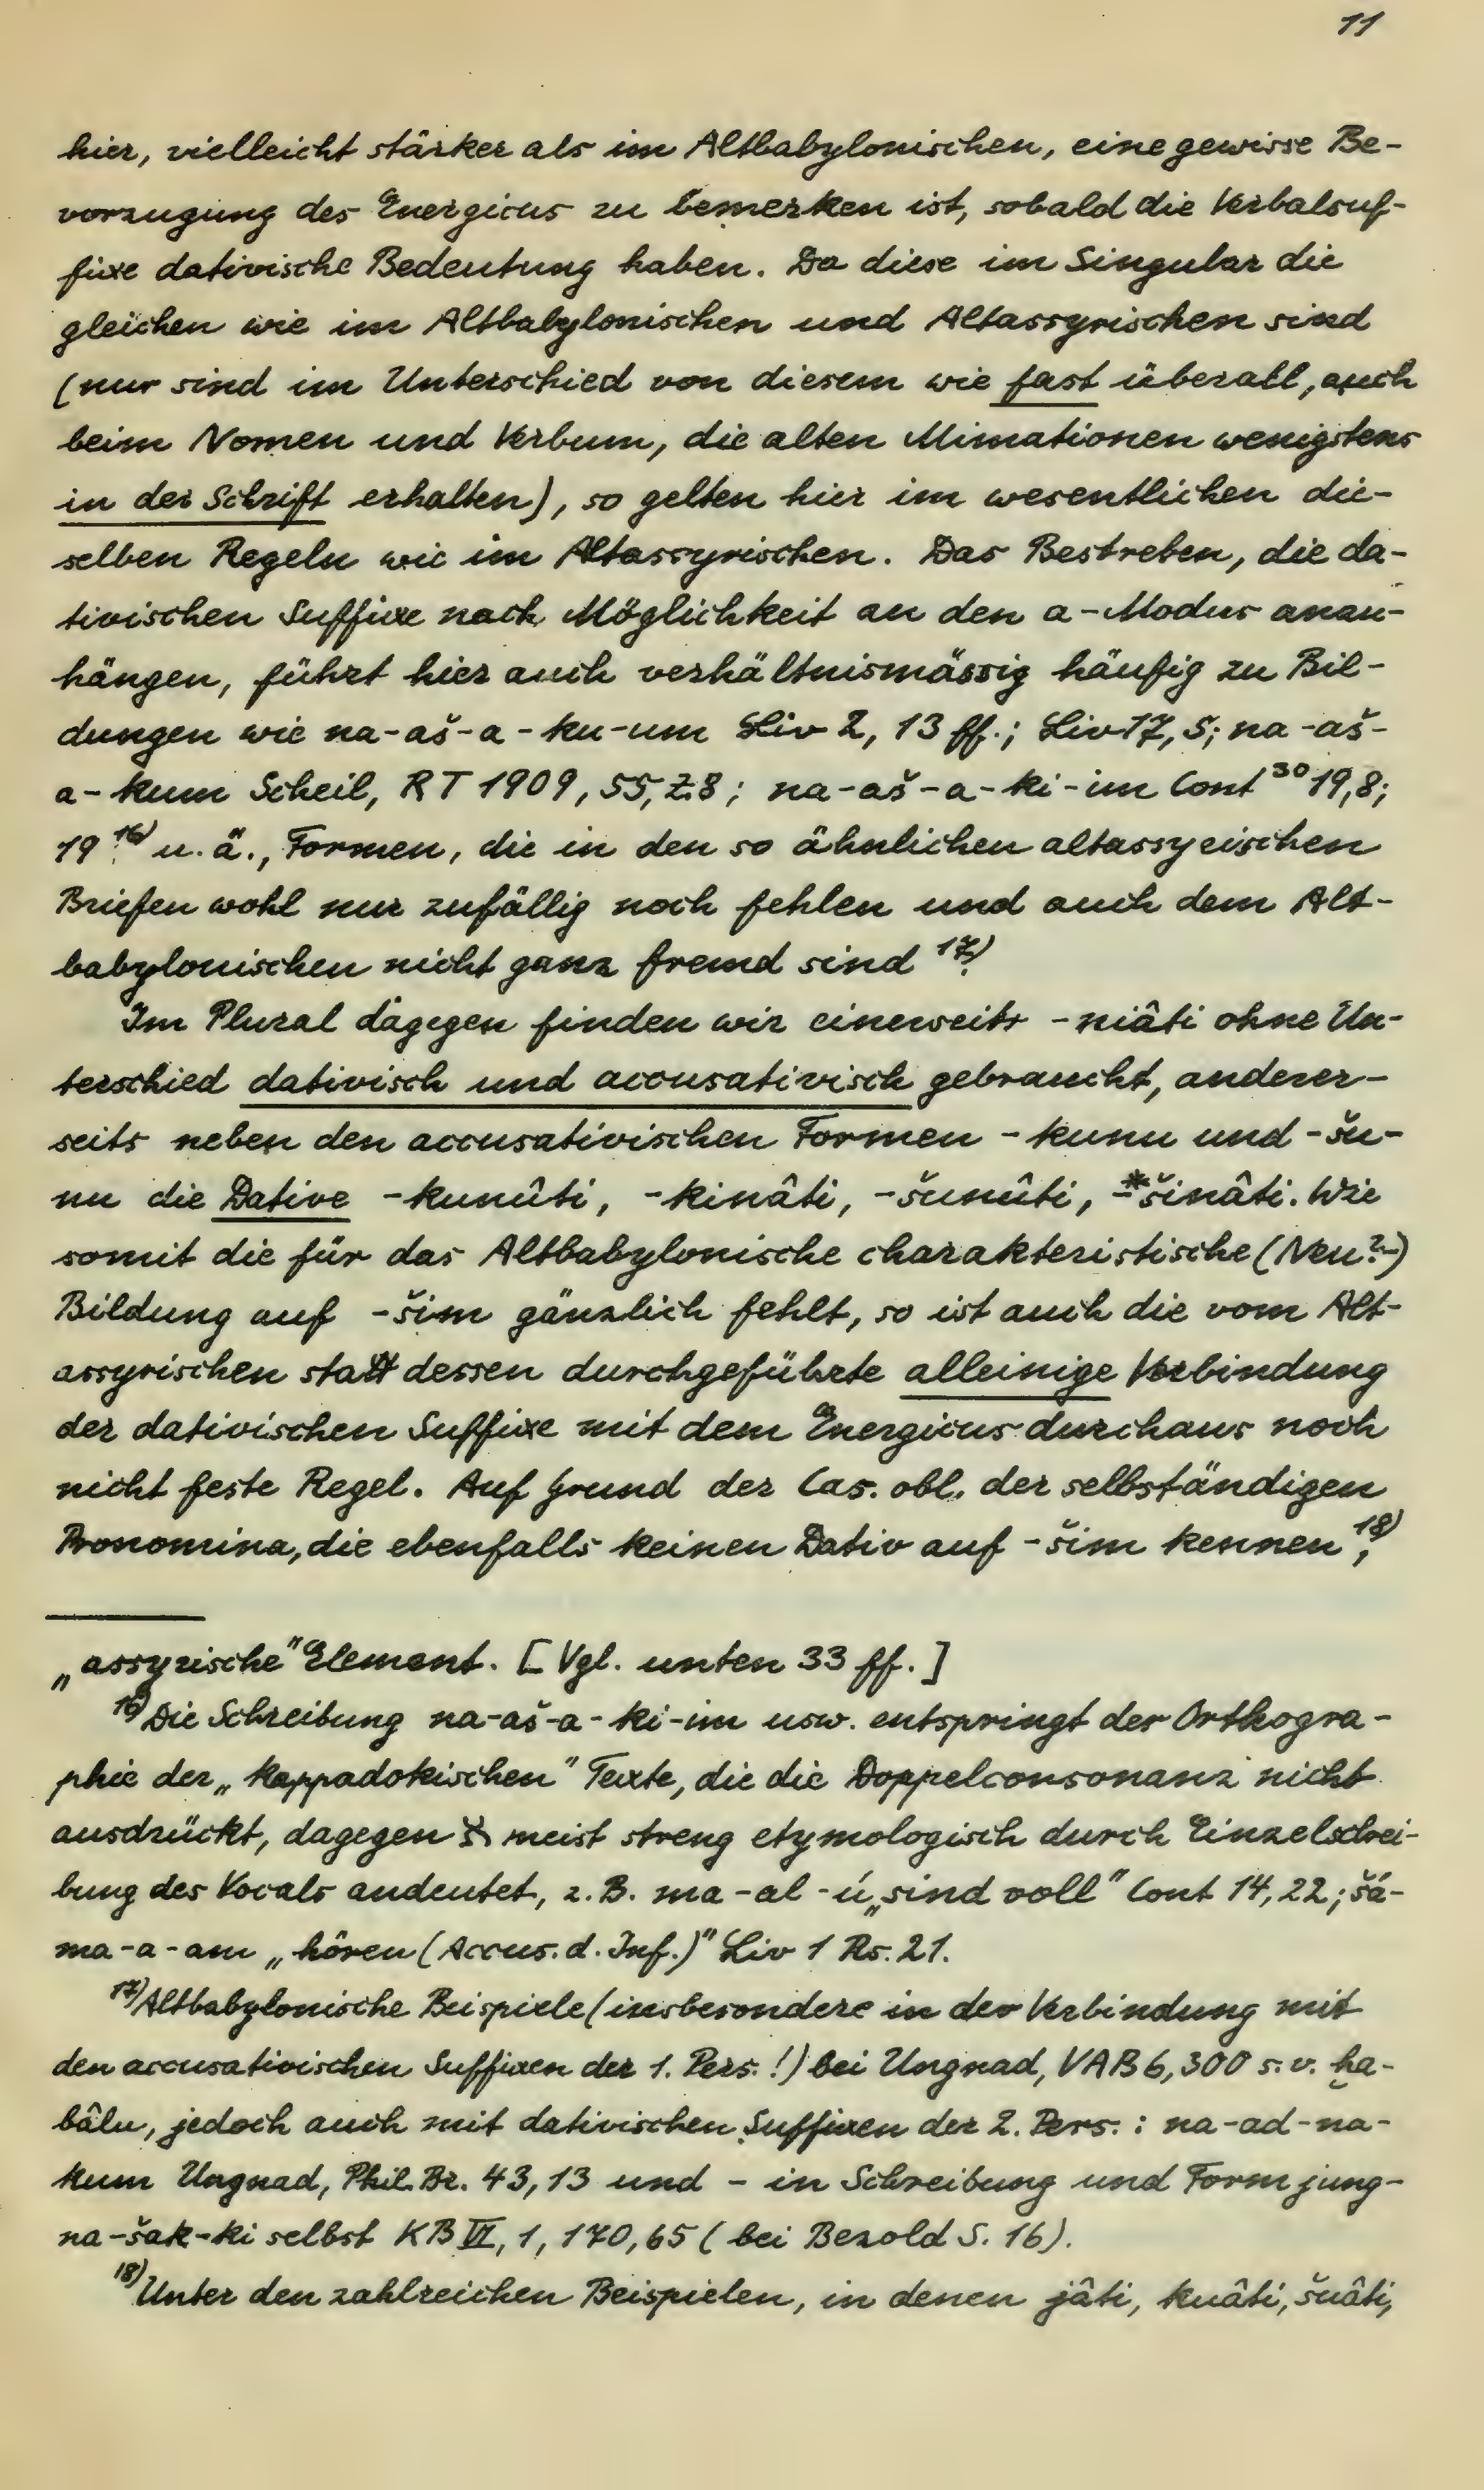 11
hier, vielleicht stärker als im Altbabylonischen, eine gewisse Be-
vorzugung des Energicus zu bemerken ist, sobald die Verbalsuf-
fixe dativische Bedeutung haben. Da diese im Singular die
gleichen wie im Altbabylonischen und Altassyrischen sind
(nur sind im Unterschied von diesem wie fast überall, auch
beim Nomen und Verbum, die alten Mimationen wenigstens
in der Schrift erhalten), so gelten hier im wesentlichen die-
selben Regeln wie im Altassyrischen. Das Bestreben, die da-
tivischen Suffixe nach Möglichkeit an den a-Modus anzu-
hängen, führt hier auch verhältnismässig häufig zu Bil-
dungen wie na-aš-a-ku-um Liv 2, 13 ff.; Liv 17, 5; na-aš-
a-kum Scheil, RT 1909, 55, Z. 8; na-aš-a-ki-im Cont 30 19,8;
19 16) u. ä., Formen, die in den so ähnlichen altassyrischen
Briefen wohl nur zufällig noch fehlen und auch dem Alt-
babylonischen nicht ganz fremd sind 17).
Im Plural dagegen finden wir einerseits -niâti ohne Un-
terschied dativisch und accusativisch gebraucht, anderer-
seits neben den accusativischen Formen -kunu und -šu-
nu die Dative -kunûti, -kinâti, -šunûti, -*šinâti. Wie
somit die für das Altbabylonische charakteristische (Neu?-)
Bildung auf -šim gänzlich fehlt, so ist auch die vom Alt-
assyrischen statt dessen durchgeführte alleinige Verbindung
der dativischen Suffixe mit dem Energicus durchaus noch
nicht feste Regel. Auf Grund der Cas. obl. der selbständigen
Pronomina, die ebenfalls keinen Dativ auf -šim kennen 18),
„assyrische" Element. [Vgl. unten 33 ff.]
16) Die Schreibung na-aš-a-ki-im usw. entspringt der Orthogra-
phie der „kappadokischen" Texte, die die Doppelconsonanz nicht
ausdrückt, dagegen א meist streng etymologisch durch Einzelschrei-
bung des Vocals andeutet, z. B. ma-al-ú „sind voll" Cont 14, 22; šá-
ma-a-am „hören (Accus. d. Inf.)" Liv 1 Rs. 21.
17) Altbabylonische Beispiele (insbesondere in der Verbindung mit
den accusativischen Suffixen der 1. Pers.!) bei Ungnad, VAB 6, 300 s. v. ḫa-
bâlu, jedoch auch mit dativischen Suffixen der 2. Pers.: na-ad-na-
kum Ungnad, Phil. Br. 43, 13 und - in Schreibung und Form jung-
na-šak-ki selbst KB VI, 1, 170, 65 (bei Bezold S. 16).
18) Unter den zahlreichen Beispielen, in denen jâti, kuâti, šuâti,